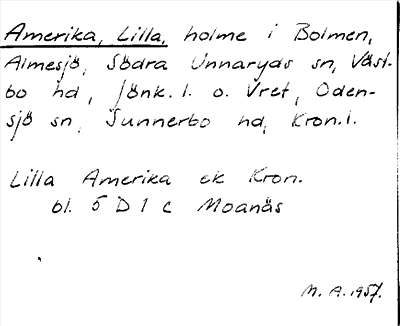 Amerika, Lilla, holme i Bolmen,
Almesjö, Södra Unnaryds sn, Väst-
bo hd, Jönk. l. o. Vret, Oden-
sjö sn, Sunnerbo hd, Kron.l.
Lilla Amerika ek Kron.
bl. 5 D 1 c Moanäs
M. A. 1957.